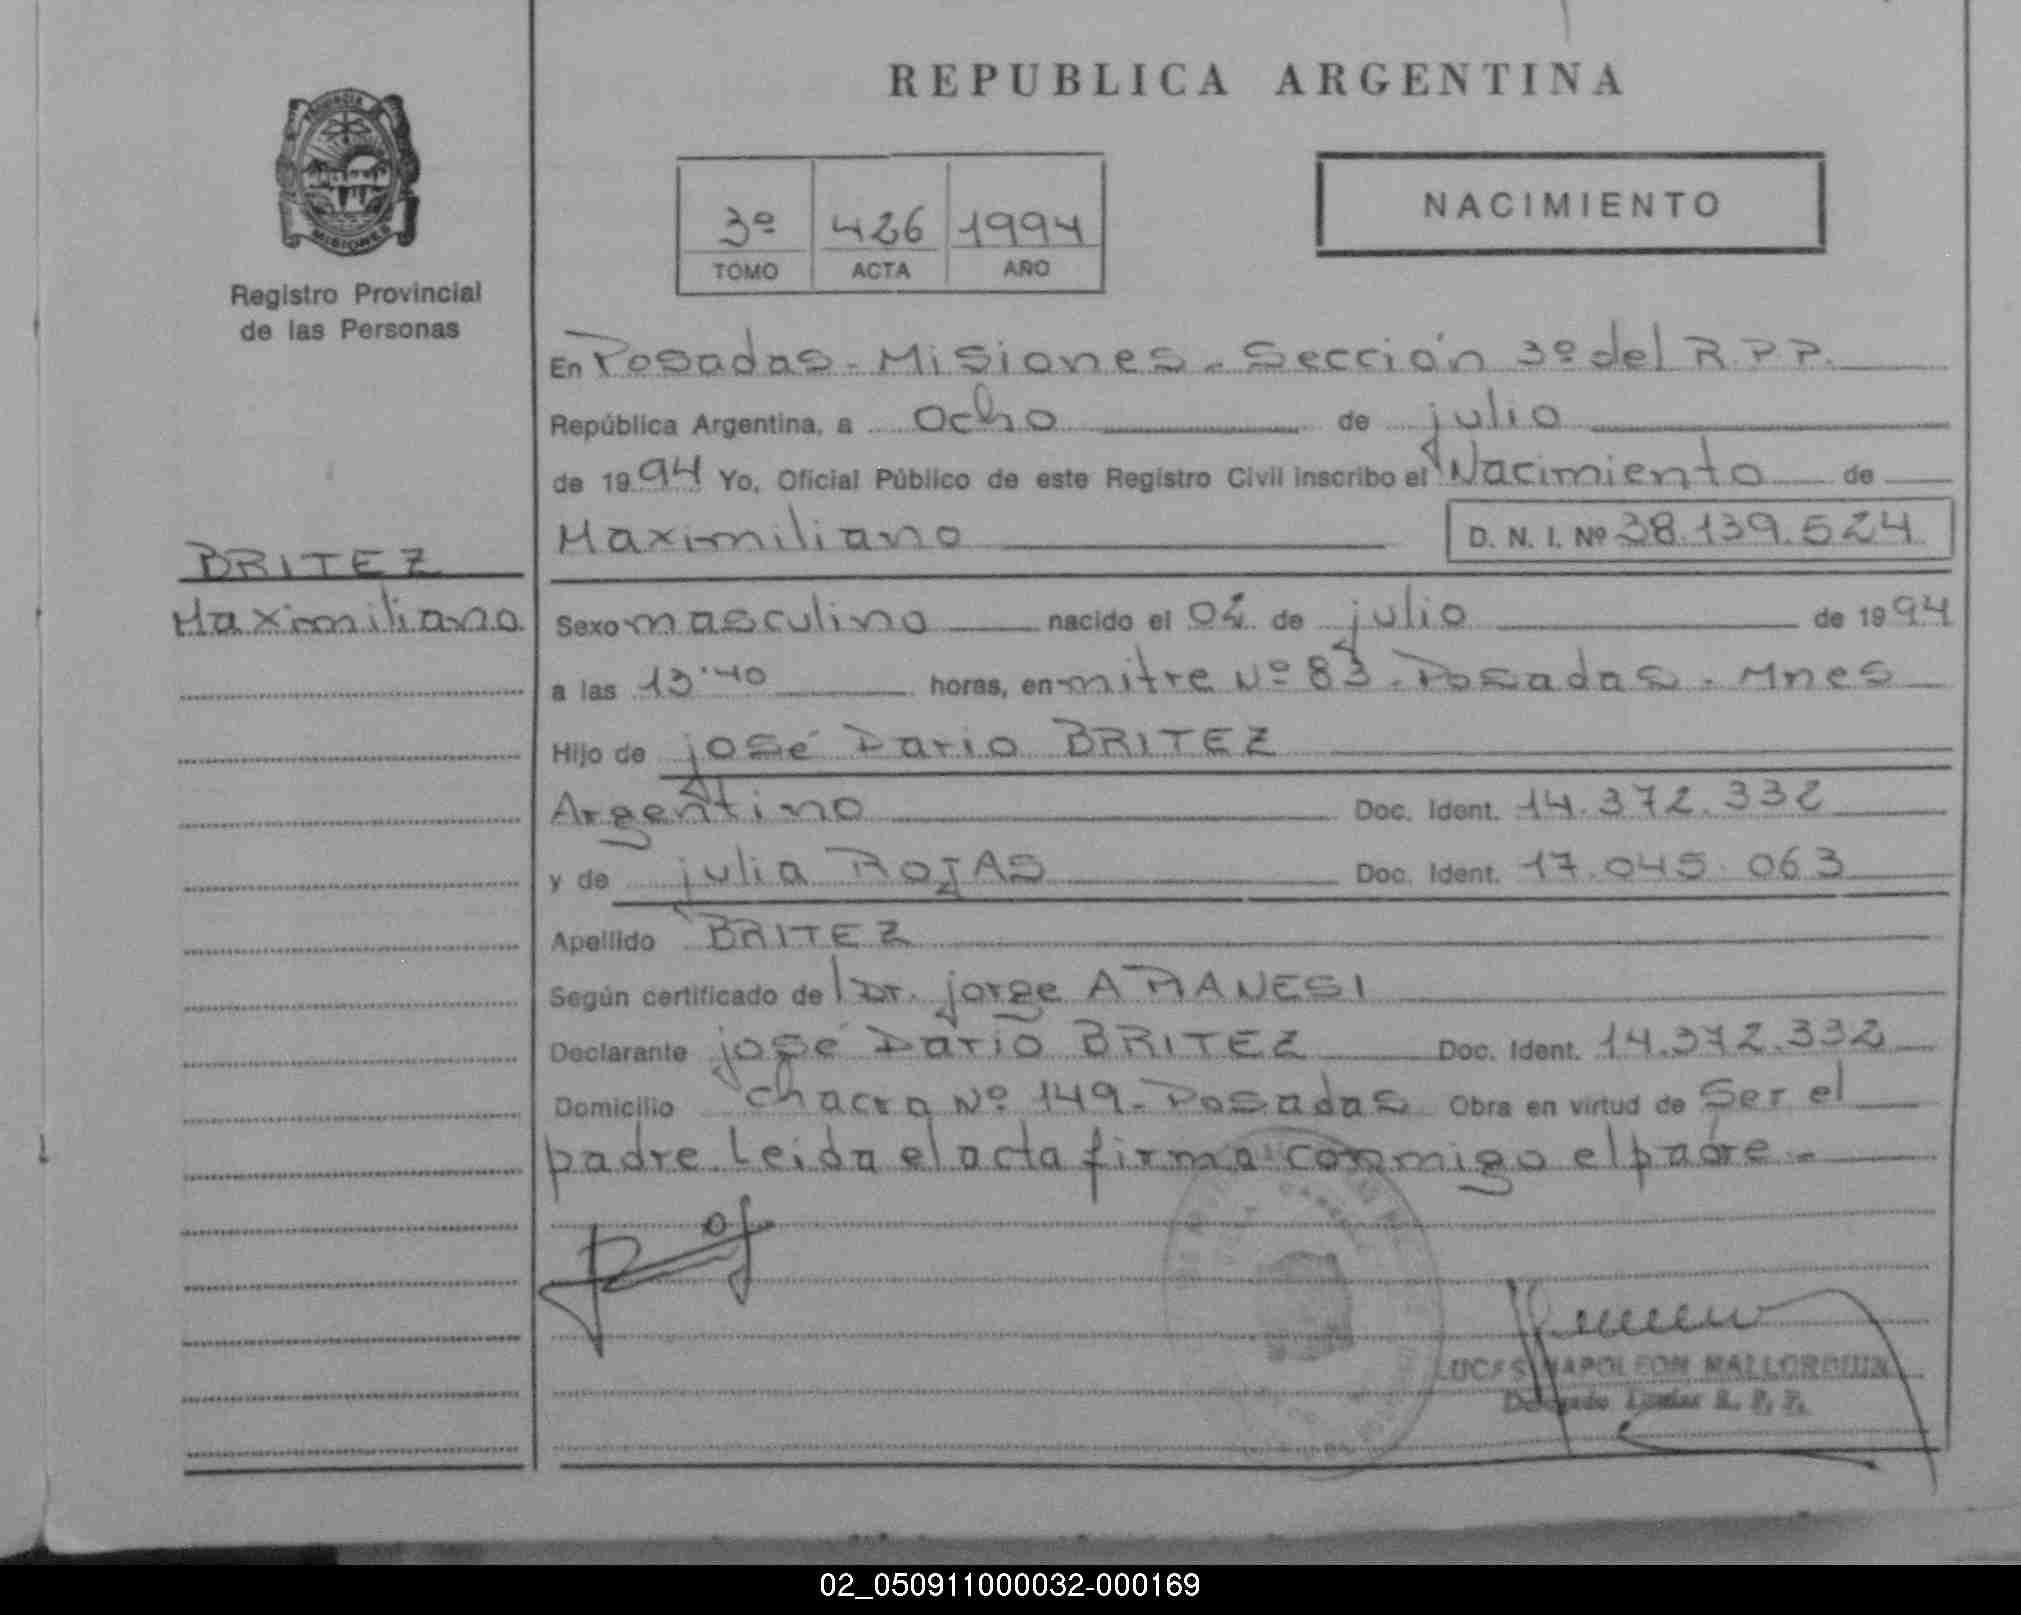 REPUBLICA ARGENTINA
PROVINCIA
MISIONES
Registro Provincial
de las Personas
3º 426 1994
TOMO ACTA AÑO
NACIMIENTO
En Posadas - Misiones - Sección 3º del R.P.P.
República Argentina, a ocho de julio
de 1994 Yo, Oficial Público de este Registro Civil inscribo el Nacimiento de
Maximiliano D. N. I. Nº 38.139.524
BRITEZ
Maximiliano
Sexo masculino nacido el 02 de julio de 1994
a las 13'40 horas, en mitre Nº 83 - Posadas - Mnes
Hijo de josé Dario BRITEZ
Argentino Doc. Ident. 14.372.332
y de julia ROJAS Doc. Ident. 17.045.063
Apellido BRITEZ
Según certificado de Dr. jorge A
Declarante josé Dario BRITEZ Doc. Ident. 14.372.332
Domicilio chacra Nº 149 - Posadas Obra en virtud de Ser el
padre. Leida el acta firma conmigo el padre -
LUCAS NAPOLEON
Delegado R. P. P.
02_050911000032-000169